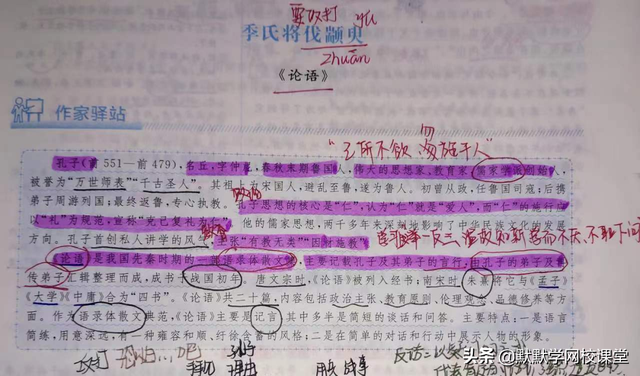 要攻打
yú
季氏将伐颛臾
zhuān
《论语》
作家驿站
勿
"己所不欲 勿施于人"
孔子(前551—前479),名丘,字仲尼,春秋末期鲁国人,伟大的思想家、教育家,儒家学派创始人,
被誉为"万世师表""千古圣人"。其祖上为宋国人,避乱至鲁,遂为鲁人。初曾从政,任鲁国司寇;后携
弟子周游列国;最终返鲁,专心执教。孔子思想的核心是"仁",认为"仁"就是"爱人",而"仁"的施行应
以"礼"为规范,宣称"克己复礼为仁"。他的儒家思想,两千多年来深刻地影响了中华民族文化的发展
方向。孔子首创私人讲学的风气,主张"有教无类""因材施教"。
举一反三 温故知新 学而不厌、不耻下问
《论语》是我国先秦时期的一部语录体散文集,主要记载孔子及其弟子的言行,由孔子的弟子及再
传弟子汇辑整理而成,成书于战国初年。唐文宗时,《论语》被列入经书;南宋时,朱熹将它与《孟子》
《大学》《中庸》合为"四书"。《论语》共二十篇,内容包括政治主张、教育原则、伦理观念、品德修养等方
面。作为语录体散文典范,《论语》主要是记言,其中多半是简短的谈话和问答。主要特点:一是语言
简练,用意深远,有一种雍容和顺、纡徐含蓄的风格;二是在简单的对话和行动中展示人物的形象。
攻打
头条 @默默学网校课堂